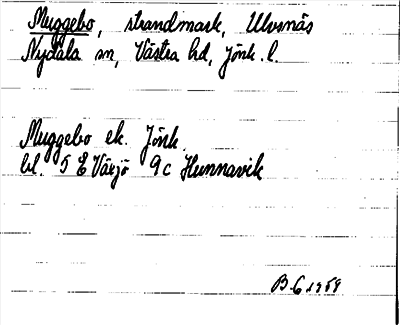 Muggebo, strandmark, Ulvsnäs
Nydala sn, Västra hd, Jönk. l.
Muggebo ek. Jönk.
bl. 5 E Växjö 9 c Hunnavik
B G 1959